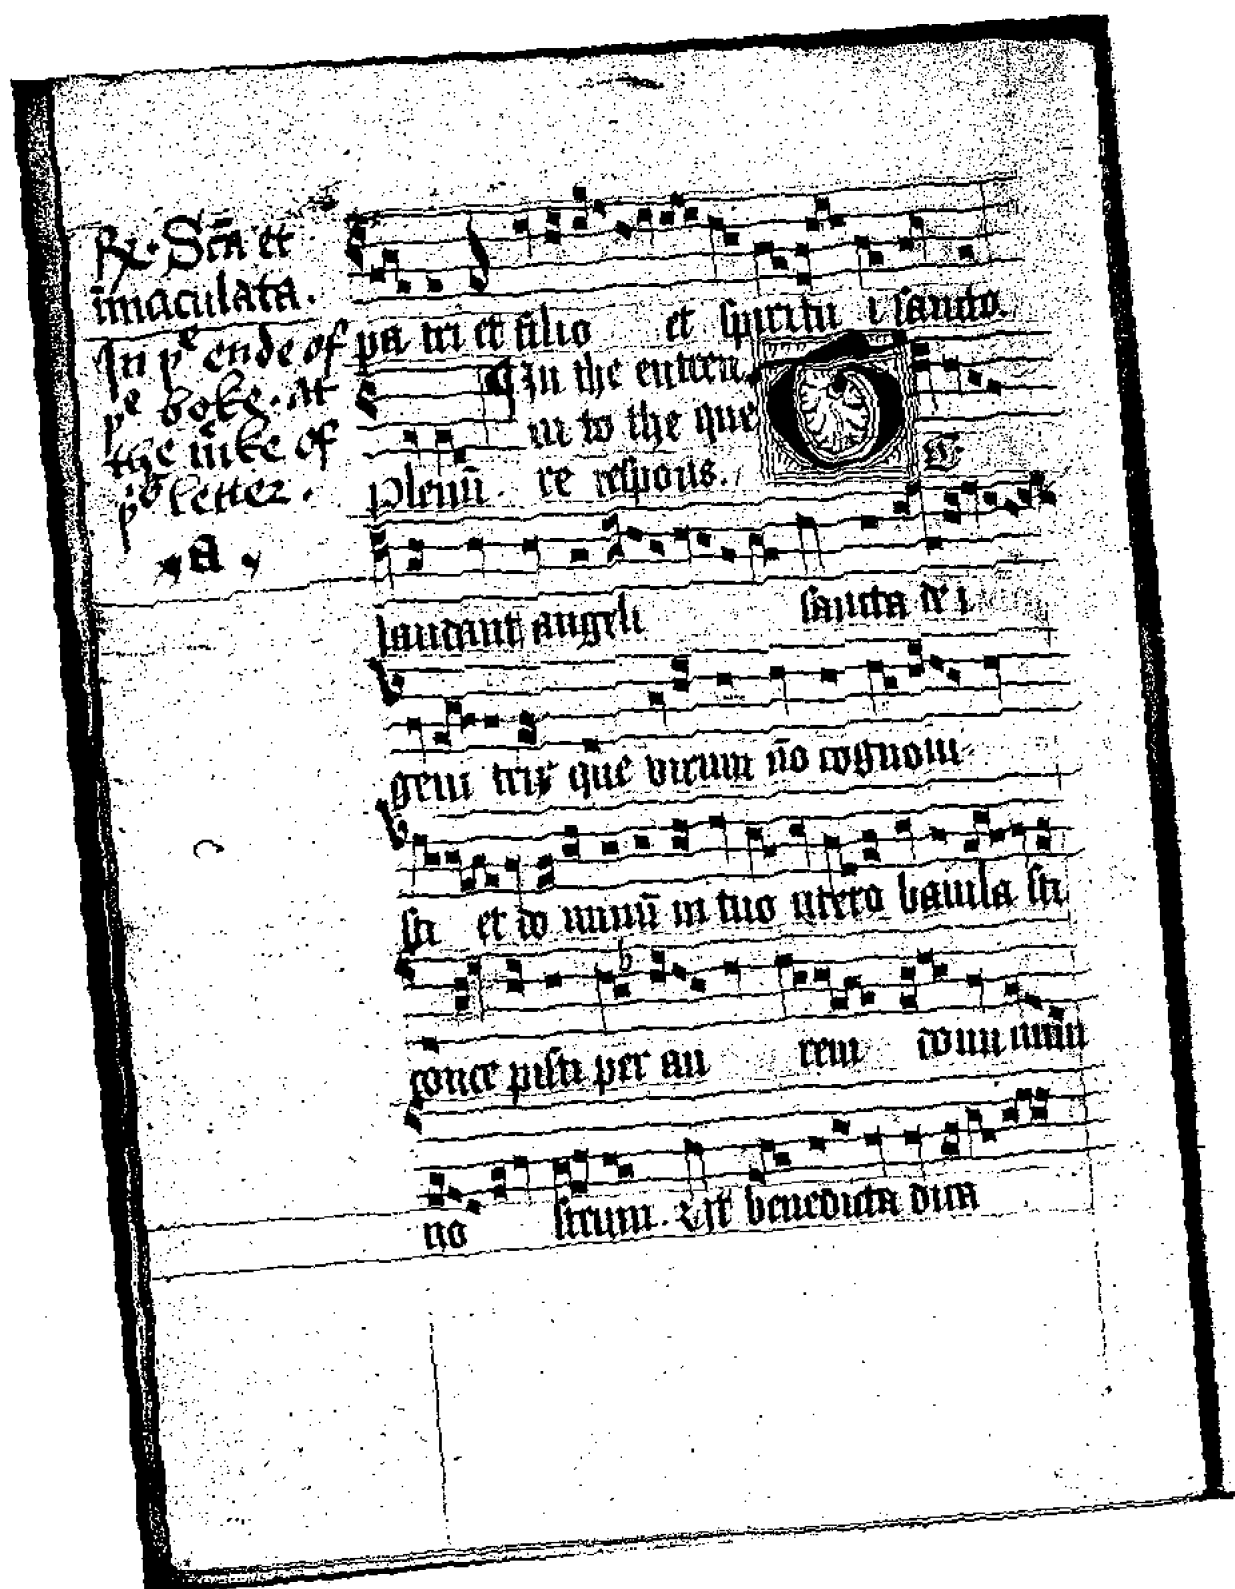 R. Sc̄a et
īmaculata.
In þᵉ ende of
þᵉ boke. at
the nūbe of
þᵉ letter.
.a.
pa tri et filio et spiritu i sancto.
¶ In the entren
in to the que
Plenū. re respons.
Te
laudant angeli sancta de i
geni trix que virum nō cognoui
sti et do minū in tuo utero baiula sti
conce pisti per au rem domi num
no strum. Ut benedicta dica